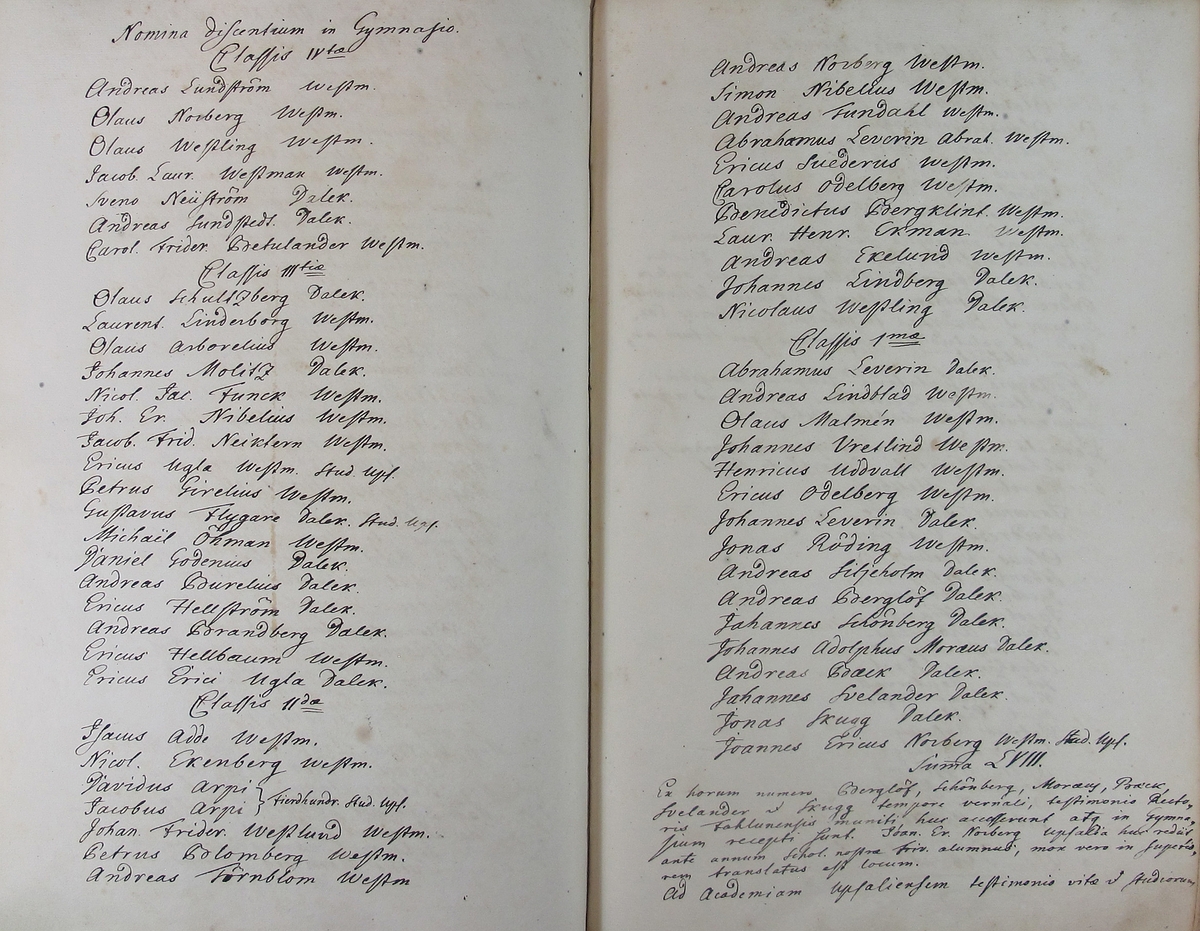 Nomina discentium in Gymnasio.
Classis IVtæ
Andreas Lundström Westm.
Olaus Norberg Westm.
Olaus Westling Westm.
Jacob. Laur. Westman Westm.
Sveno Neüström Dalek.
Andreas Sundstedt. Dalek.
Carol. Frider. Betulander Westm.
Classis IIItiæ
Olaus Schultzberg Dalek.
Laurent. Linderborg Westm.
Olaus Arborelius Westm.
Johannes Molitz Dalek.
Nicol. Jac. Funck Westm.
Joh. Er. Nibelius Westm.
Jacob. Frid. Neiktern Westm.
Ericus Ugla Westm. Stud. Ups.
Petrus Girelius Westm.
Gustavus Flygare Dalek. Stud. Ups.
Michaël Öhman Westm.
Daniel Godenius Dalek.
Andreas Burelius Dalek.
Ericus Hellström Dalek.
Andreas Brandberg Dalek.
Ericus Hellbaum Westm.
Ericus Erici Ugla Dalek.
Classis IIdæ
Isacus Adde Westm.
Nicol. Ekenberg Westm.
Davidus Arpi
Jacobus Arpi } Fierdhundr. Stud. Ups.
Johan. Frider. Westlund Westm.
Petrus Blomberg Westm.
Andreas Törnblom Westm
Andreas Norberg Westm.
Simon Nibelius Westm.
Andreas Sundahl Westm.
Abrahamus Leverin Abrah. Westm.
Ericus Suederus Westm.
Carolus Odelberg Westm.
Benedictus Bergklint. Westm.
Laur. Henr. Ekman Westm.
Andreas Ekelund Westm.
Johannes Lindberg Dalek.
Nicolaus Westling Dalek.
Classis Imæ
Abrahamus Leverin Dalek.
Andreas Lindblad Westm.
Olaus Malmén Westm.
Johannes Vretlind Westm.
Henricus Uddvall Westm.
Ericus Odelberg Westm.
Johannes Leverin Dalek.
Jonas Röding Westm.
Andreas Siljeholm Dalek.
Andreas Berglöf Dalek.
Jahannes Schönberg Dalek.
Johannes Adolphus Moræus Dalek.
Andreas Bæck Dalek.
Jahannes Svelander Dalek.
Jonas Skugg Dalek.
Joannes Ericus Norberg Westm. Stud. Ups.
Suma LVIII.
Ex horum numero Berglöf, Schönberg, Moræus, Bæck,
Svelander & Skugg tempore vernali, testimonio Recto-
ris Fahlunensis muniti, huc accesserunt atq in Gymna-
sium recepti sunt. Joan. Er. Norberg Upsalia huc rediit
ante annum Schol. nostræ Triv. alumnus, mox vero in superio-
rem translatus est locum.
Ad Academiam Upsaliensem testimonio vitæ & studiorum